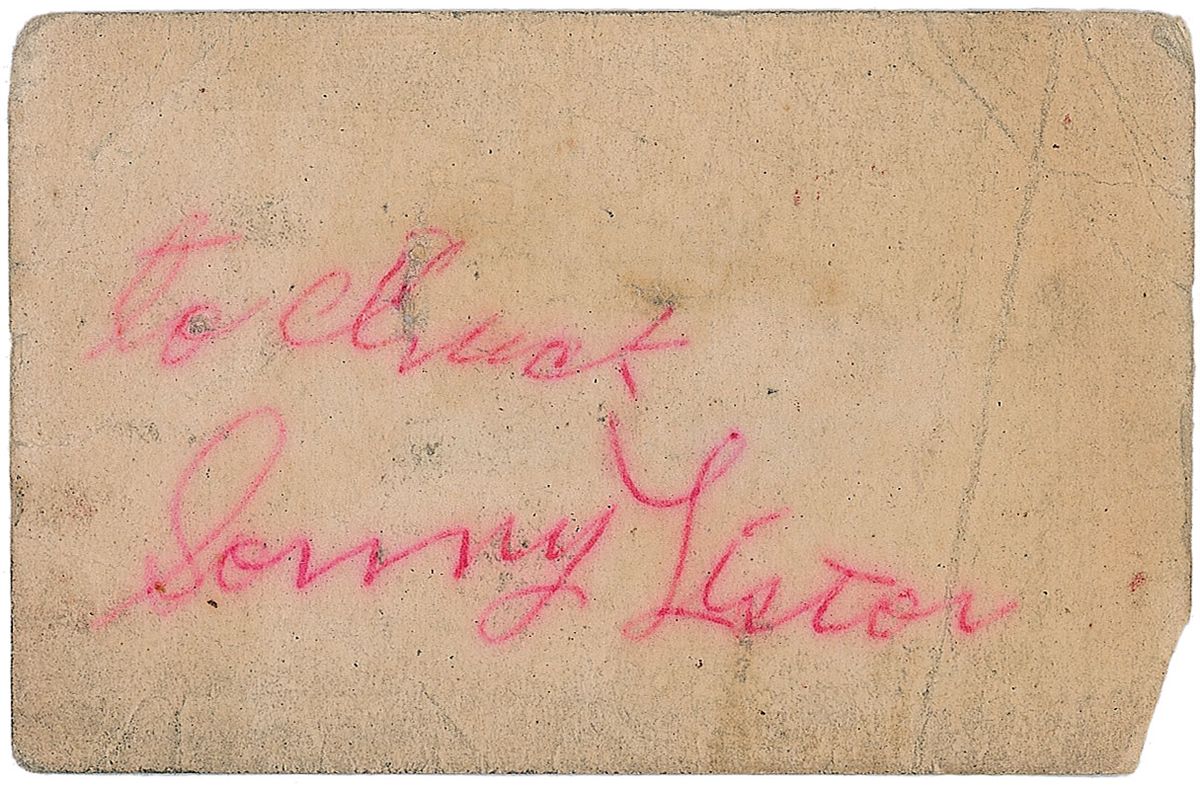 to Chuck
Sonny Liston